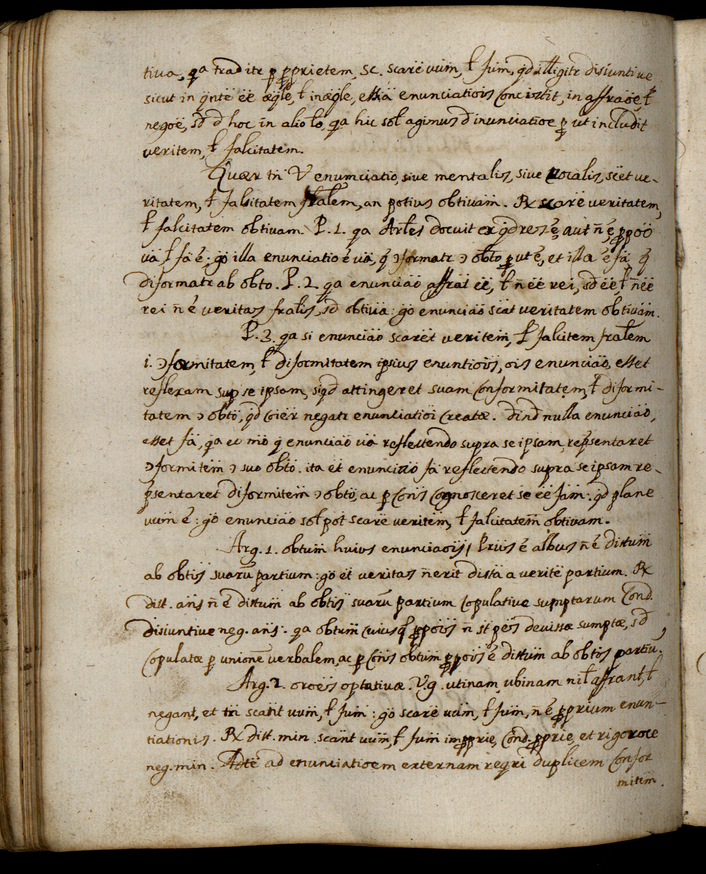 tiva, qa traditr p pprietem, sc. scare vum, ł fsum, qd itlligitr disiuntive
sicut in qnte eē æqle, ł inæqle, essia enunciationis consistit, in affraōe, ł
negōe, sd d hoc in alio lo, qa hic sol agimus d inunciatioe p ut includit
veritem, ł falcitatem.
Quær tn V enunciatio, sive mentalis, sive vocalis, scet ve-
ritatem, ł falsitatem fralem, an potius obtivam. Rx scare veritatem,
ł falcitatem obtivam. P. 1. qa Artles docuit ex qd res ē, aut n ē ppōō
va ł fa ē: gō illa enunciatio ē va, q ɔformatr ɔ obto put ē, et illa ē fa q
diformatr ab obto. P. 2. qa enunciao affrat eē, ł n eē rei, sd eē, ł n eē
rei n ē veritas fralis, sd obtiva: gō enunciao scat veritatem obtivam.
P. 3. qa si enunciao scaret veritem, ł falcitem fralem
i. ɔformitatem, ł diformitatem ipsius enuntiois, ois enunciao, esset
reflexam sup se ipsam, siqd attingeret suam conformitatem, ł diformi-
tatem ɔ obto, qd coier negatr enunciatioi creatæ. Dind nulla enunciao,
esset fa, qa eo mo q enunciao va reflectendo supra se ipsam, repsentaret
ɔformitem ɔ suo obto. ita et enunciao fa reflectendo supra se ipsam re-
psentaret diformitem ɔ obto, ac p cons cognosceret se eē fsam. qd plane
vum ē: gō enunciao sol pot scare veritem, ł falcitatem obtivam.
Arg. 1. obtum huius enunciaois, Prius ē albus n ē distum
ab obtis suaru partium: gō et veritas n erit dista a verite partium. Rx
dist. ans n ē distum ab obtis suaru partium copulative sumptarum Cond.
disiuntive neg. ans. qa obtum cuiusq ppois n st ptes devissæ sumptæ, sd
copulatæ p unione verbalem, ac p cons obtum ppois ē distum ab obtis partiu.
Arg. 2. oroes optativæ Vg. utinam, ubinam nil affrant, ł
negant, et tn scant vum, ł fsum: gō scare vum, ł fsum, n ē pprium enun-
tiationis. Rx dist. min. scant vum, ł fsum impprie, Cond. pprie, et rigorose
neg. min. Adte ad enunciatioem externam reqri duplicem confor
mitem